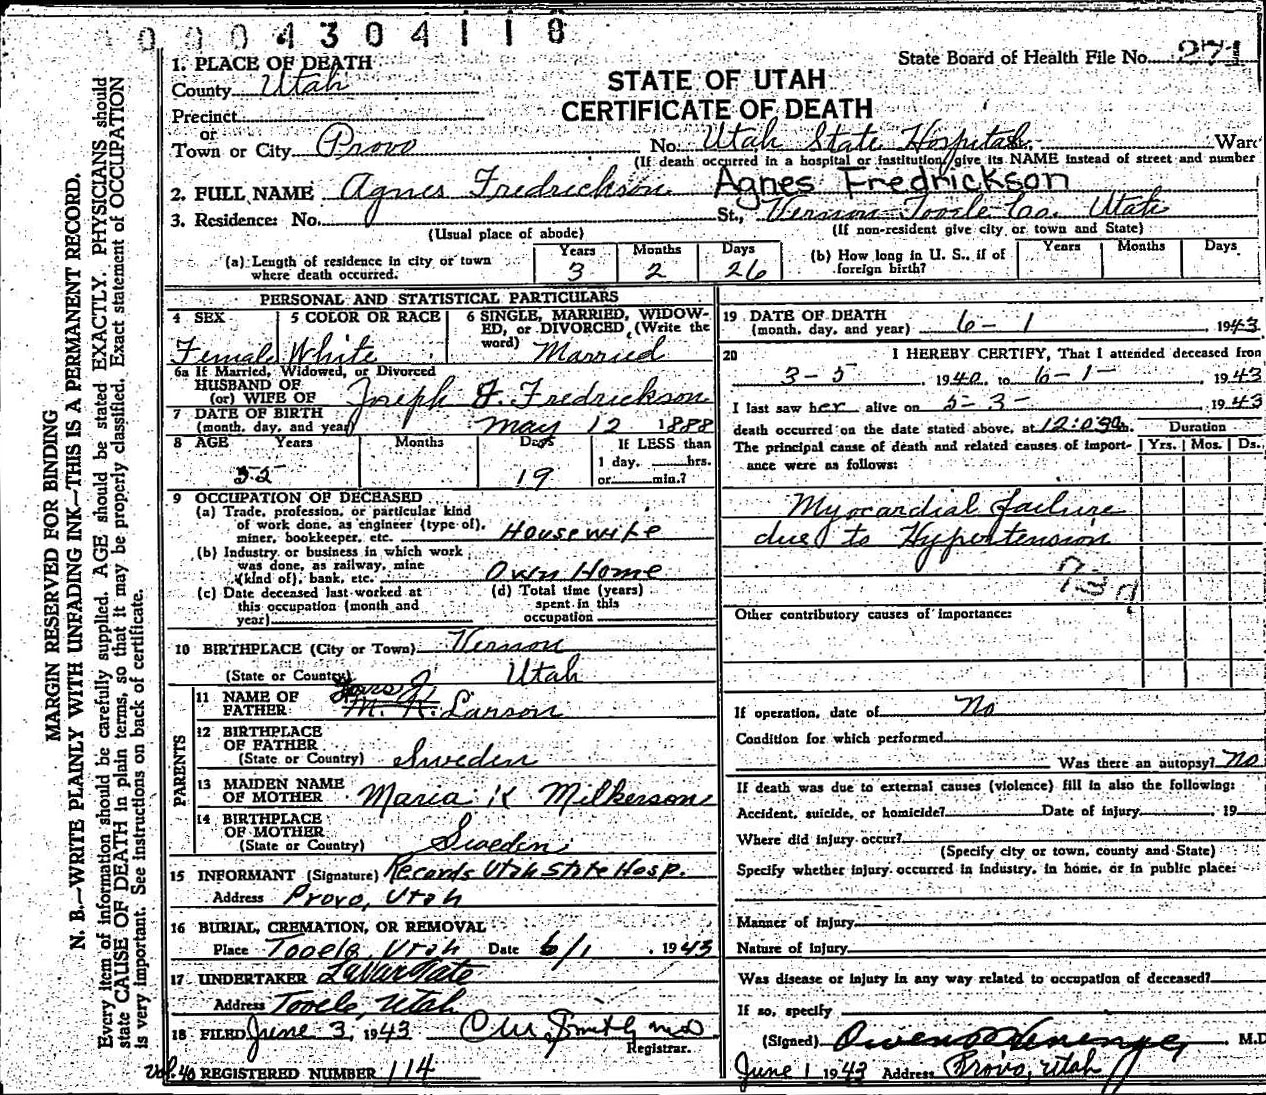 0004304118
State Board of Health File No. 271
1. PLACE OF DEATH
County Utah
STATE OF UTAH
CERTIFICATE OF DEATH
Precinct
or
Town or City Provo No. Utah State Hospital Ward
(If death occurred in a hospital or institution, give its NAME instead of street and number
2. FULL NAME Agnes Fredrickson Agnes Fredrickson
3. Residence: No. St., Vernon Tooele Co. Utah
(Usual place of abode) (If non-resident give city or town and State)
(a) Length of residence in city or town where death occurred. Years 3 Months 2 Days 26
(b) How long in U. S., if of foreign birth? Years Months Days
PERSONAL AND STATISTICAL PARTICULARS
4 SEX Female
5 COLOR OR RACE White
6 SINGLE, MARRIED, WIDOW-
ED, or DIVORCED (Write the
word) Married
6a If Married, Widowed, or Divorced
HUSBAND OF
(or) WIFE OF Joseph F. Fredrickson
7 DATE OF BIRTH
(month, day, and year) May 12 1888
8 AGE Years Months Days If LESS than
1 day, hrs.
or min.?
19
9 OCCUPATION OF DECEASED
(a) Trade, profession, or particular kind
of work done, as engineer (type of),
miner, bookkeeper, etc. Housewife
(b) Industry or business in which work
was done, as railway, mine
(kind of), bank, etc. Own Home
(c) Date deceased last worked at
this occupation (month and
year)
(d) Total time (years)
spent in this
occupation
10 BIRTHPLACE (City or Town) Vernon
(State or Country) Utah
PARENTS
11 NAME OF
FATHER M. K. Larson
12 BIRTHPLACE
OF FATHER
(State or Country) Sweden
13 MAIDEN NAME
OF MOTHER Maria K Milkerson
14 BIRTHPLACE
OF MOTHER
(State or Country) Sweden
15 INFORMANT (Signature) Records Utah State Hosp.
Address Provo, Utah
16 BURIAL, CREMATION, OR REMOVAL
Place Tooele, Utah Date 6/1, 1943
17 UNDERTAKER LaVar Tate
Address Tooele, Utah
18 FILED June 3, 1943 Smith M D
Registrar.
Vol. 40 REGISTERED NUMBER 114
19 DATE OF DEATH
(month, day, and year) 6-1, 1943
20 I HEREBY CERTIFY, That I attended deceased from
3-5 1940, to 6-1- 1943
I last saw her alive on 5-3- 1943
death occurred on the date stated above, at 12:03am. Duration
The principal cause of death and related causes of import-
ance were as follows: Yrs. Mos. Ds.
Myocardial failure
due to Hypertension
Other contributory causes of importance:
If operation, date of No
Condition for which performed
Was there an autopsy? No
If death was due to external causes (violence) fill in also the following:
Accident, suicide, or homicide? Date of injury 19
Where did injury occur?
(Specify city or town, county and State)
Specify whether injury occurred in industry, in home, or in public place:
Manner of injury
Nature of injury
Was disease or injury in any way related to occupation of deceased?
If so, specify
(Signed) Owen M.D
June 1 1943 Address Provo, Utah
MARGIN RESERVED FOR BINDING
N. B.—WRITE PLAINLY WITH UNFADING INK—THIS IS A PERMANENT RECORD.
Every item of information should be carefully supplied. AGE should be stated EXACTLY. PHYSICIANS should
state CAUSE OF DEATH in plain terms, so that it may be properly classified. Exact statement of OCCUPATION
is very important. See instructions on back of certificate.